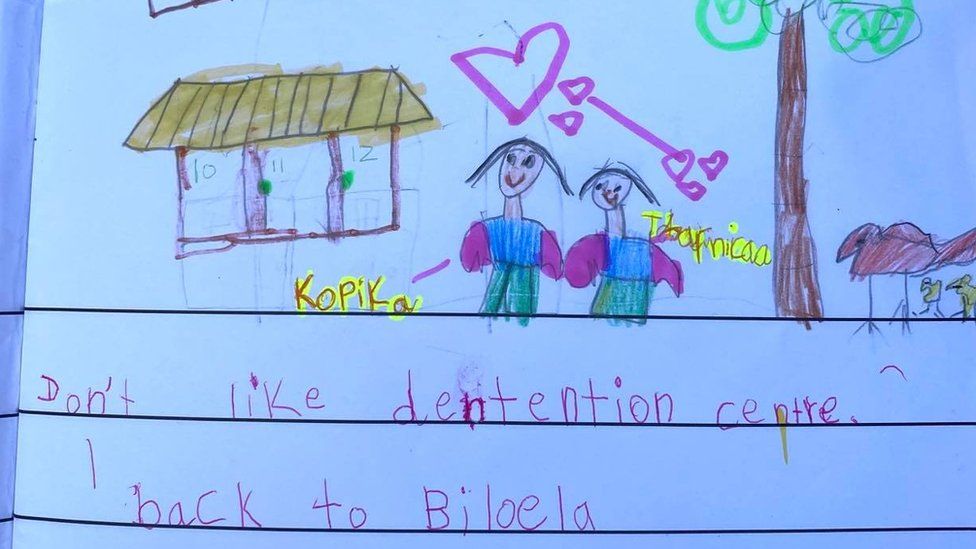 10 11 12
Kopika
Tharnicaa
Don't like dentention centre.
back to Biloela